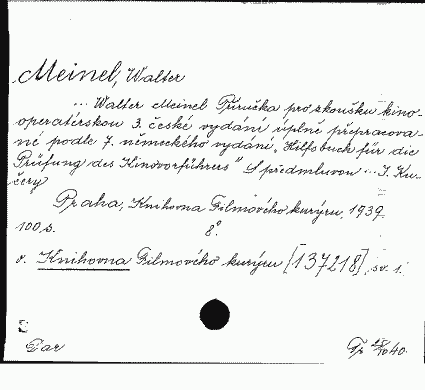 Meinel, Walter
... Walter Meinel Příručka pro zkoušku kino-
operatérskou 3. české vydání úplně přepracova-
né podle 7. německého vydání „Hilfsbuch für die
Prüfung des Kinovorführers" S předmluvou ... J. Ku-
čery
Praha, Knihovna Filmového kurýru, 1939
100, s. 8°.
v. Knihovna Filmového kurýru [137218], sv. 1.
Dar